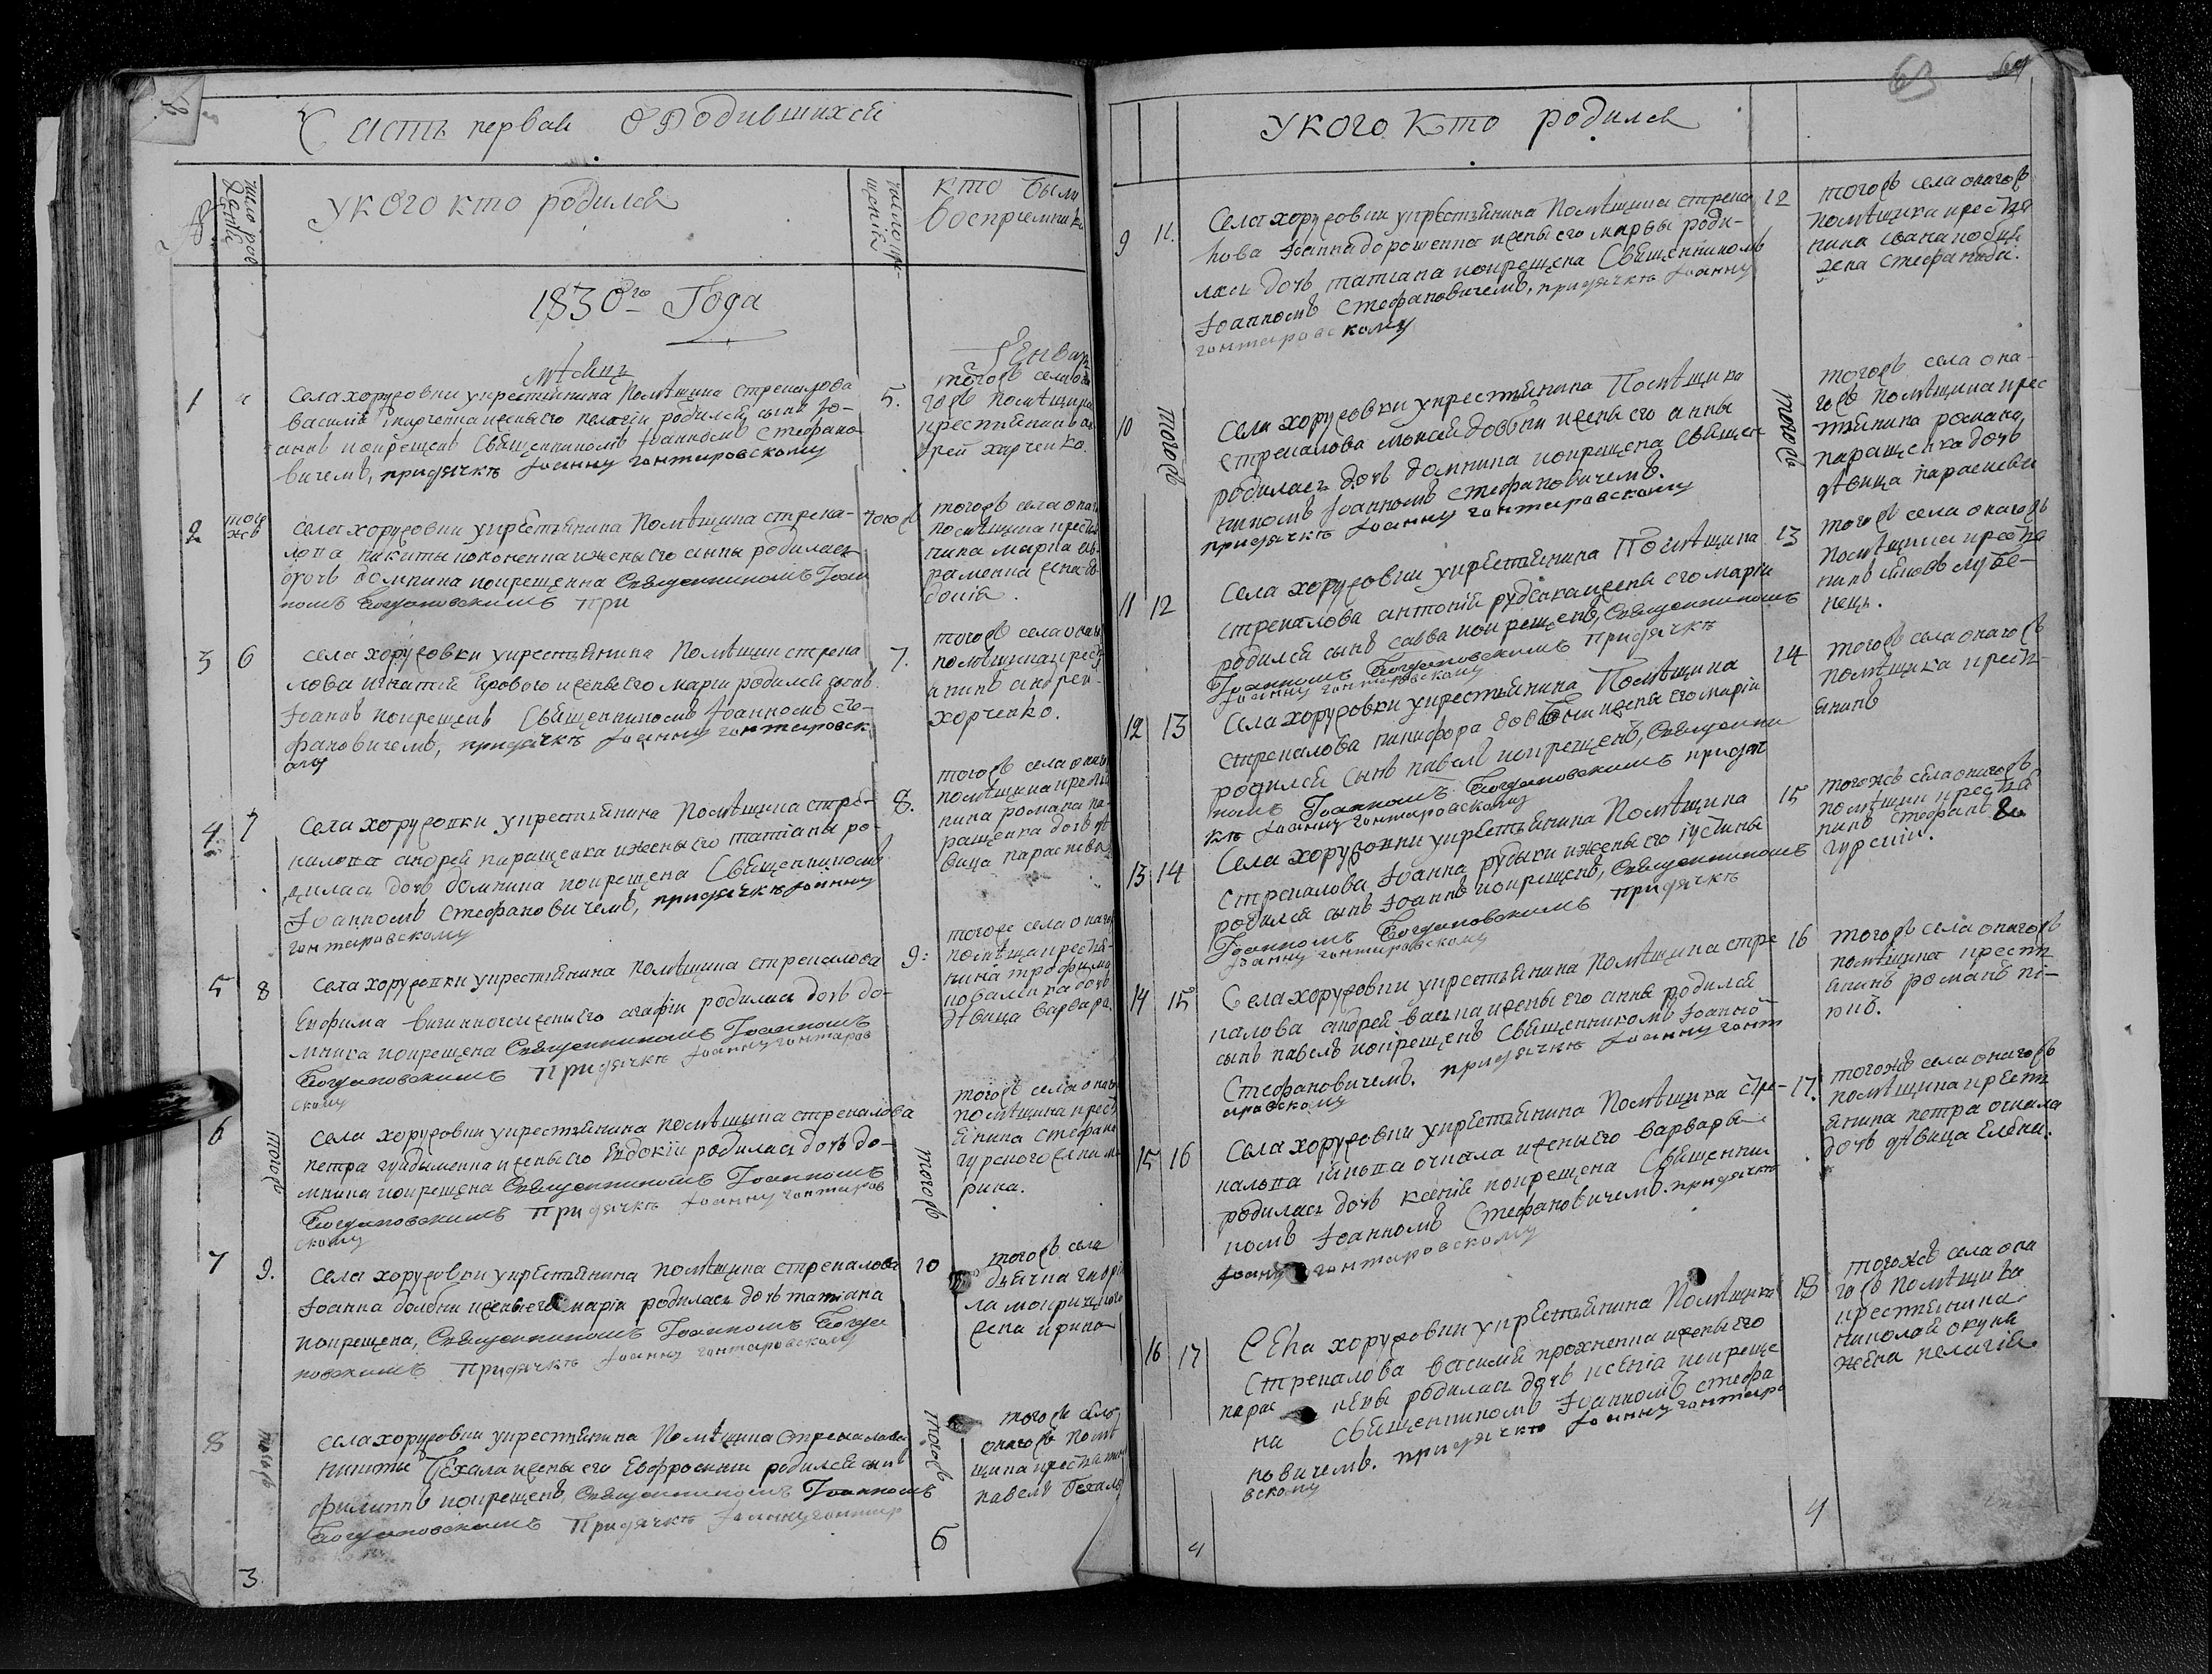 Часть первая О Родившихся
число рож дения
У кого кто родился
кто были
восприемники
1830го Года
Генварь
1
5.
Села хоружовки у крестьянина Помещика Стрекалова
родился сынъ Іо-
аннъ и крещенъ Священникомъ Іоанномъ Стефано-
вичемъ, при дячкѣ Іоанну гонтаровскому
тогожъ села она
гожъ помещика
крестьянинъ ан
дрей харченко.
2
тогожъ
Села хоружовки у крестьянина Помещика Стрека-
лова никиты кононенка и жены его анны родилась
дочь домникиа и крещенна Священникомъ Іоан
номъ Богдановскимъ при
тогожъ
тогожъ села онаго
помещика крестья
нина марка ав-
раменка жена ев-
докія.
3
6
Села хоружовки у крестьянина Помещика стрека
лова игнатія ярового и жены его маріи родился сынъ
Іоаннъ и крещенъ Священникомъ Іоанномъ Сте-
фановичемъ, при дячкѣ Іоанну гонтаровск
ому
7.
тогожъ села онаго
помещика крест
янинъ андрей
харченко.
4
7
Села хоружовки у крестьянина Помещика стре-
калова андрей паращенка и жены его татіаны ро-
дилась дочь домникиа и крещена Священникомъ
Іоанномъ Стефановичемъ, при дячкѣ Іоанну
гонтаровскому
8.
тогожъ села онаго
помещика крестья
нина романа па-
ращенка дочь дѣ
вица параскева
5
8
Села хоружовки у крестьянина помещика стрекалова
Ефима и жены его агафіи родилась дочь до-
мника и крещена Священникомъ Іоанномъ
Богдановскимъ При дячкѣ Іоанну гонтаров
скому
9.
тогоже села онаго
помещика крестья-
нина трофима
коваленка дочь
дѣвица варвара.
6
тогожъ
Села хоружовки у крестьянина помещика стрекалова
петра и жены его Евдокіи родилась дочь до-
мника и крещена Священникомъ Іоанномъ
Богдановскимъ При дячкѣ Іоанну гонтаров
скому
тогожъ
тогожъ села онаго
помещика крест
янина Стефана
гурского жена ма
рина.
7
9.
Села хоружовки у крестьянина помещика стрекалова
Іоанна довбни и жены его маріи родилась дочь татіана
и крещена, Священникомъ Іоанномъ Богда
новскимъ При дячкѣ Іоанну гонтаровскому
10
тогожъ села
дьячка гаври
ла
жена ирина
8
тогожъ
Села хоружовки у крестьянина Помещика Стрекалова
никиты Бехала и жены его Евфросиніи родился сынъ
филиппъ и крещенъ, Священникомъ Іоанномъ
Богдановскимъ При дячкѣ Іоанну гонтар
тогожъ
тогожъ села
онагожъ помѣ
щика крестьянинъ
павелъ бехалъ
3
6
63
64
У кого Кто родился
9
11.
Села хоружовки у крестьянина Помещика стрека
лова Іоанна дорошенка и жены его марфы роди-
лась дочь татіана и крещена Священникомъ
Іоанномъ Стефановичемъ, при дячкѣ Іоанну
гонтаровскому
12
тогожъ села онагожъ
помещика крестья
нина
жена стефанида.
10
тогожъ
Села хоружовки у крестьянина Помещика
Стрекалова моисей довбни и жены его анны
родилась дочь домникиа и крещена Священ
никомъ Іоанномъ Стефановичемъ.
при дячкѣ Іоанну гонтаровскому
тогожъ
тогожъ села она-
гожъ помещика крес
тьянина романа
паращенка дочь
дѣвица параскева
11
12
Села хоружовки у крестьянина Помещика
Стрекалова антоній рудяка и жены его маріи
родился сынъ савва и крещенъ, Священникомъ
Іоанномъ Богдановскимъ При дячкѣ
Іоанну гонтаровскому
13
тогожъ села онагожъ
помещика крестья
нинъ яковъ лубе-
нецъ.
12
13
Села хоружовки у крестьянина Помещика
Стрекалова никифора довбни и жены его маріи
родился сынъ павелъ и крещенъ, Священни
комъ Іоанномъ Богдановскимъ при дяч
кѣ Іоанну гонтаровскому
14
тогожъ села онагожъ
помещика крест-
янинъ
13
14
Села хоружовки у крестьянина Помещика
Стрекалова Іоанна рудыки и жены его іустины
родился сынъ Іоаннъ и крещенъ, Священникомъ
Іоанномъ Богдановскимъ При дячкѣ
Іоанну гонтаровскому
15
тогожъ села онагожъ
помещика крестья
нинъ стефанъ
гурскій.
14
15
Села хоружовки у крестьянина Помещика стре
калова андрей и жены его анны родился
сынъ павелъ и крещенъ Священникомъ Іоанно
Стефановичемъ. при дячкѣ Іоанну гонт
аровскому
16
тогожъ села онагожъ
помещика крест
янинъ романъ
15
16
Села хоружовки у крестьянина Помещика стре-
калова якова очкала и жены его варвары
родилась дочь ксенія и крещена Священни
комъ Іоанномъ Стефановичемъ. при дячкѣ
Іоанну гонтаровскому
17.
тогожъ села онагожъ
помещика крест
янина петра очкала
дочь дѣвица Елена.
16
17
Села хоружовки у крестьянина Помещика
Стрекалова василія прохненка и жены его
парас кевы родилась дочь ксенія и креще
на Священникомъ Іоанномъ стефа
новичемъ. при дячкѣ Іоанну гонтаро
вскому
18
тогожъ села она
гожъ помещика
крестьянина
николай окунь
жена пелагія
4
4